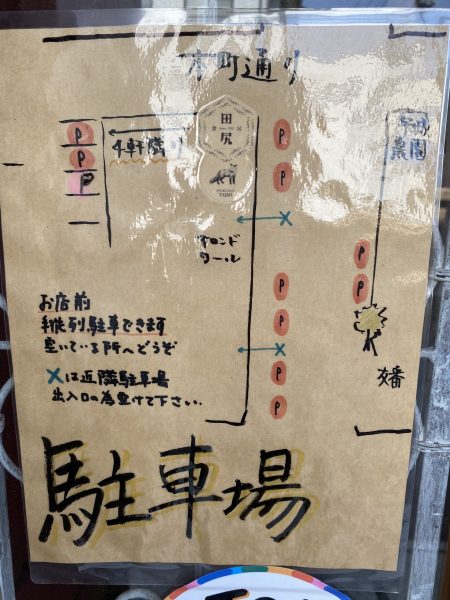 本町通り
P
P
P
4軒隣り
田
尻
P
P
X
農園
ロンド
ール
P
P
P
P
X
P
P
お店前
縦列駐車できます
空いている所へどうぞ
Xは近隣駐車場
出入口の為空けて下さい.
交番
駐車場